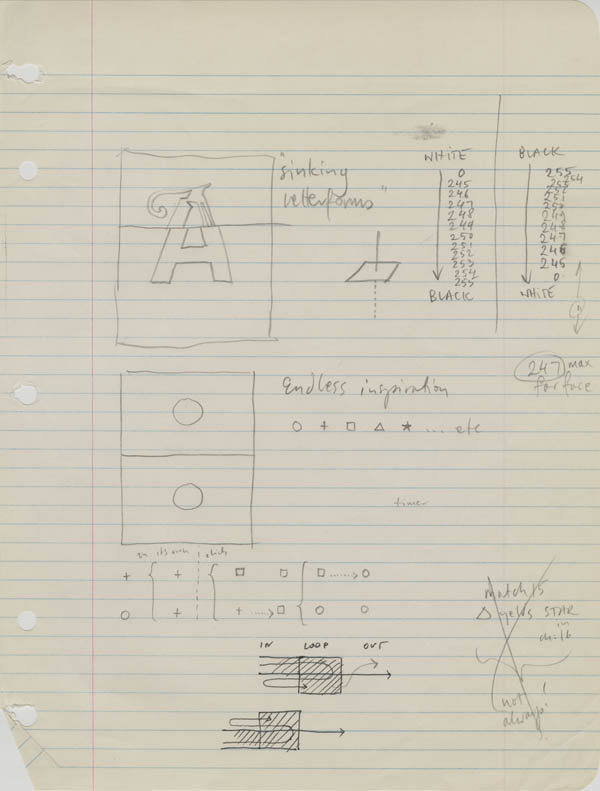 "sinking
letterforms"
A
WHITE
0
245
246
247
248
249
250
251
252
253
254
255
BLACK
BLACK
255
254
253
252
251
250
249
248
247
246
245
0
WHITE
247 max
for face
Endless inspiration
... etc
timer
on its own
click
match 5
yields STAR
in
not
always!
IN LOOP OUT